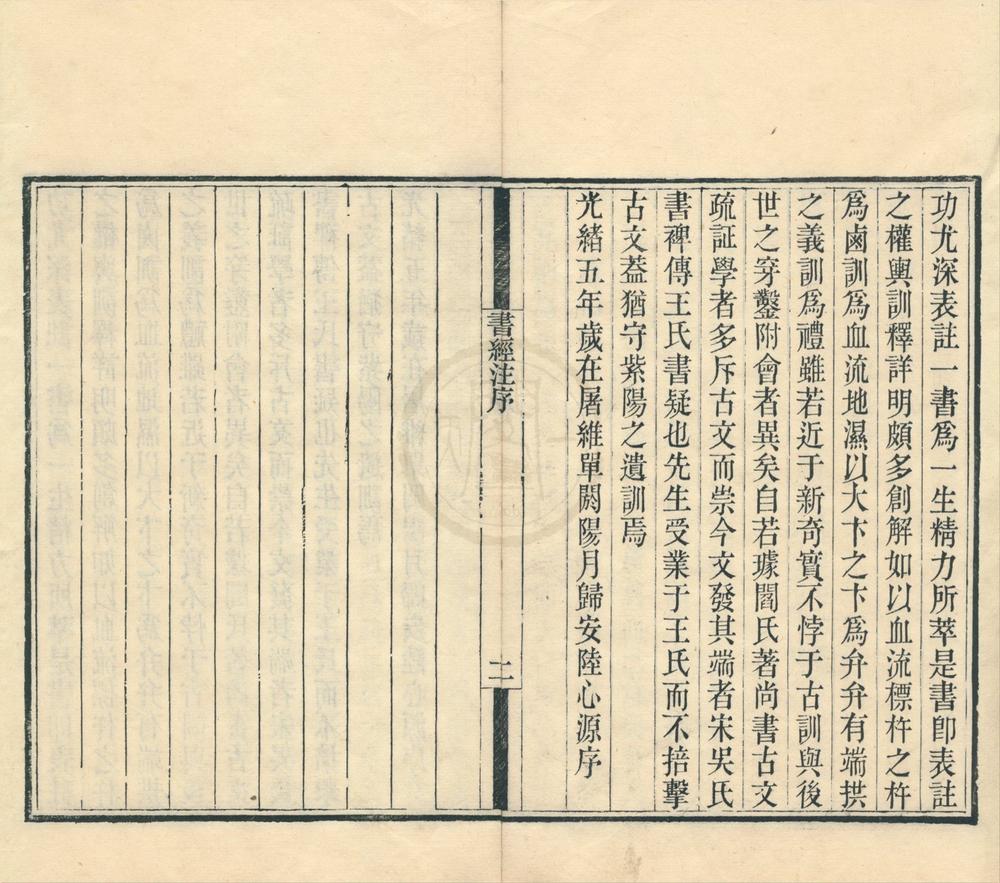 功尤深表註一書爲一生精力所萃是書卽表註
之權輿訓釋詳明頗多創解如以血流標杵之杵
爲鹵訓爲血流地濕以大卞之卞爲弁弁有端拱
之義訓爲禮雖若近于新奇實不悖于古訓與後
世之穿鑿附會者異矣自若璩閻氏著尚書古文
疏証學者多斥古文而崇今文發其端者宋吳氏
書裨傳王氏書疑也先生受業于王氏而不掊擊
古文葢猶守紫陽之遺訓焉
光緒五年歲在屠維單閼陽月歸安陸心源序
書經注序
二